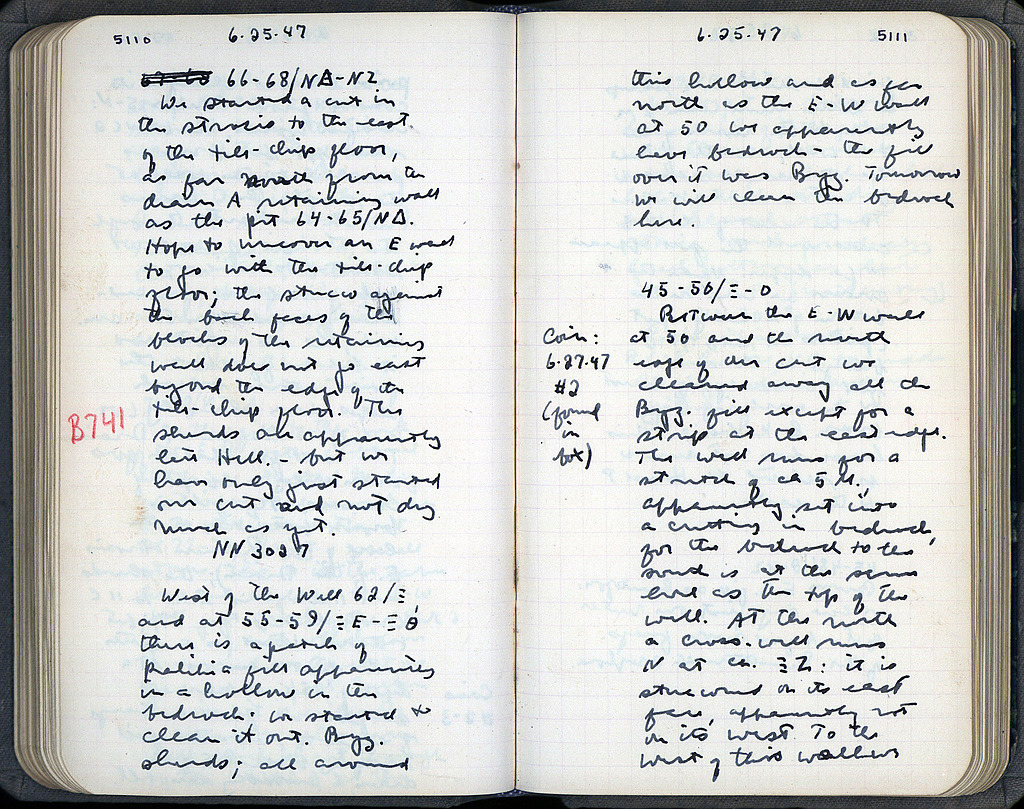 5110 6.25.47
66-68/ΝΔ-ΝΖ
We started a cut in
the strosis to the east
of the tile-chip floor,
as far south from the
drain A retaining wall
as the pit 64-65/ΝΔ.
Hope to uncover an E wall
to go with the tile-chip
floor; the stucco against
the back faces of the
blocks of the retaining
wall does not go east
beyond the edge of the
tile-chip floor. The
sherds are apparently
late Hell. - but we
have only just started
our cut and not dug
much as yet.
NN 3027
B741
West of the Well 62/Ξ,
and at 55-59/ΞΕ-ΞΘ
there is a patch of
fill apparently
in a hollow in the
bedrock. We started to
clean it out. Byz.
sherds; all around
6.25.47 5111
this hollow and as far
north as the E-W wall
at 50 we apparently
have bedrock - the fill
over it was Byz. Tomorrow
we will clean the bedrock
here.
45-56/Ξ-Ο
Between the E-W wall
at 50 and the north
edge of our cut we
cleaned away all the
Byz. fill except for a
strip at the east edge.
The wall runs for a
stretch of ca 5 M.,
apparently set into
a cutting in bedrock,
for the bedrock to the
south is at the same
level as the top of the
wall. At the north
a cross-wall runs
N at ca. ΞΖ: it is
stuccoed on its east
face, apparently not
on its west. To the
west of this wall we
Coin:
6.27.47
#2
(found
in
box)